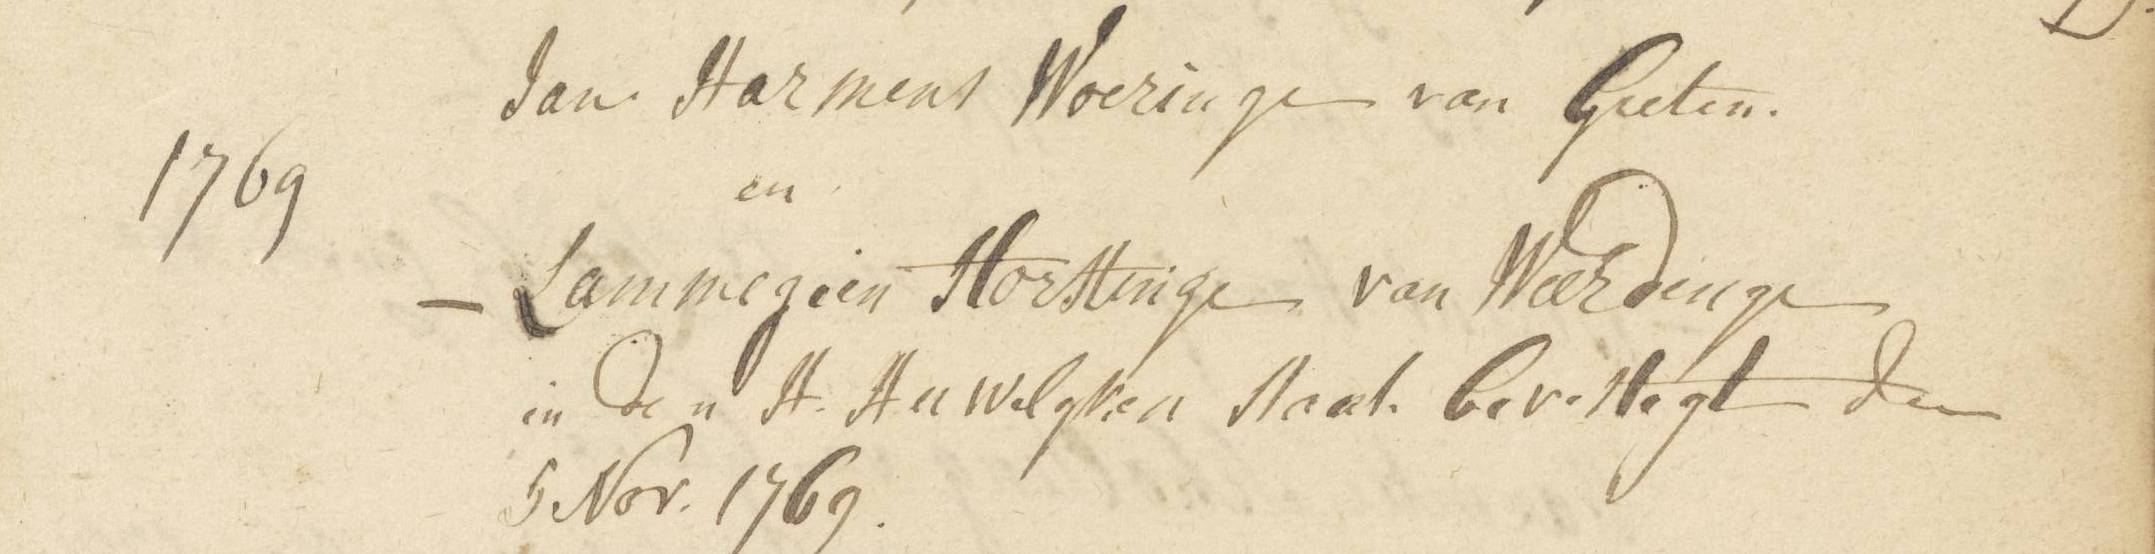 Jan Harmens Woeringe van Gieten.
1769
en
– Lammegien Horstinge van Weerdinge
in den H. Huwelyken Staat bevestigt den
5 Nov. 1769.